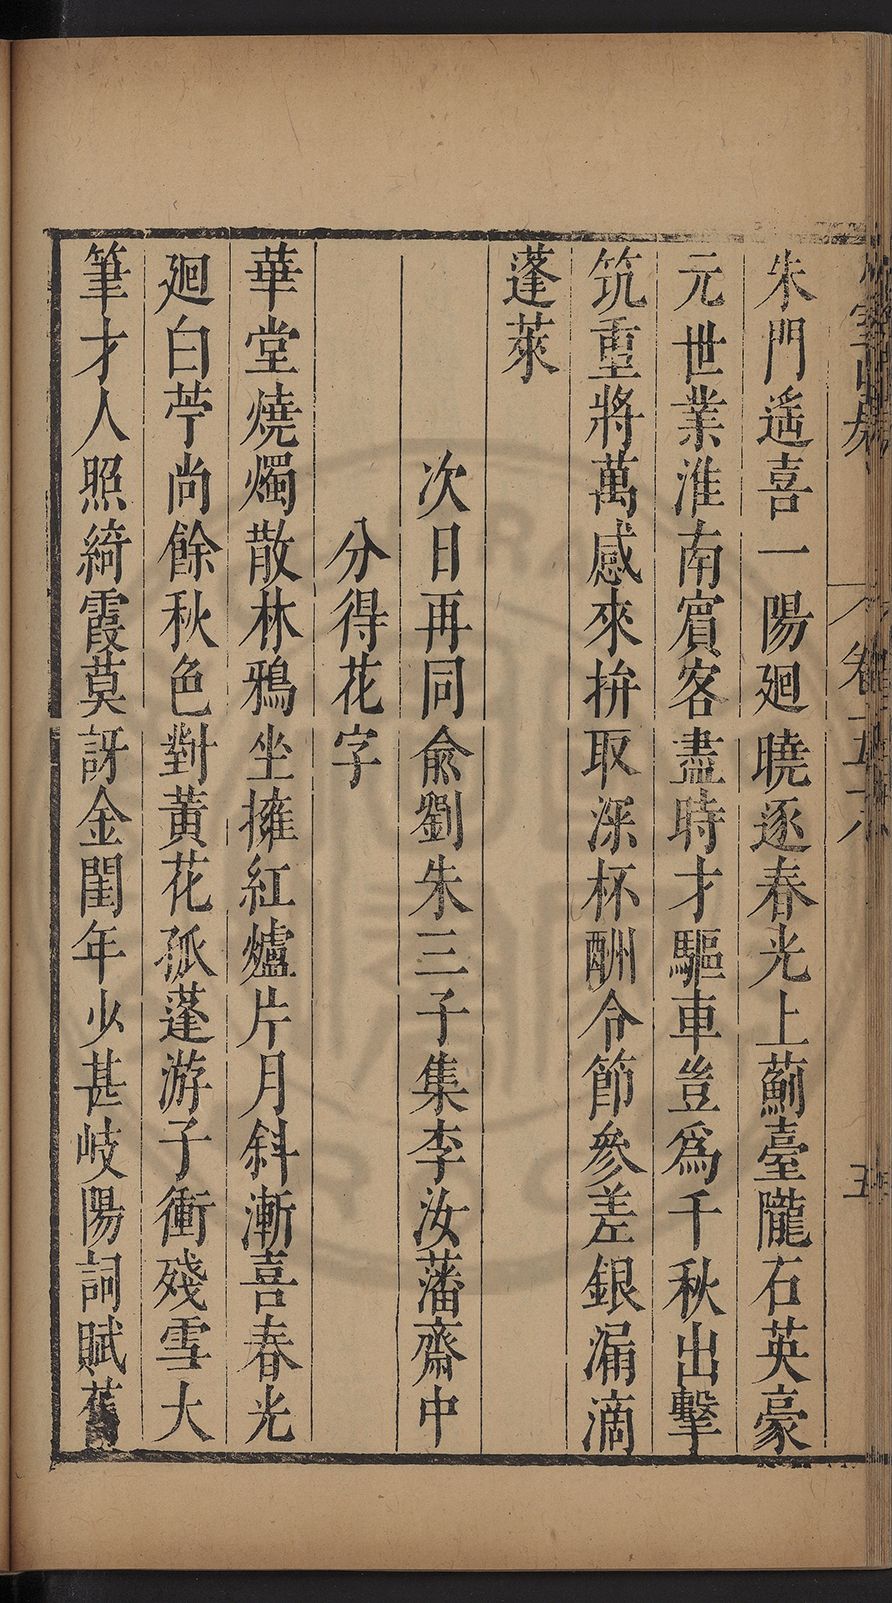 朱門遥喜一陽廻曉逐春光上薊臺隴石英豪
元世業淮南賓客盡時才驅車豈爲千秋出擊
筑重將萬感來拚取深杯酬令節參差銀漏滴
蓬萊
次日再同俞劉朱三子集李汝藩齋中
分得花字
華堂燒燭散林鴉坐擁紅爐片月斜漸喜春光
廻白苧尚餘秋色對黃花孤蓬游子衝殘雪大
筆才人照綺霞莫訝金閨年少甚岐陽詞賦舊